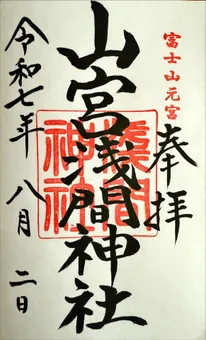 富士山元宮
奉拝
山宮浅間神社
浅間神社
令和七年八月二日